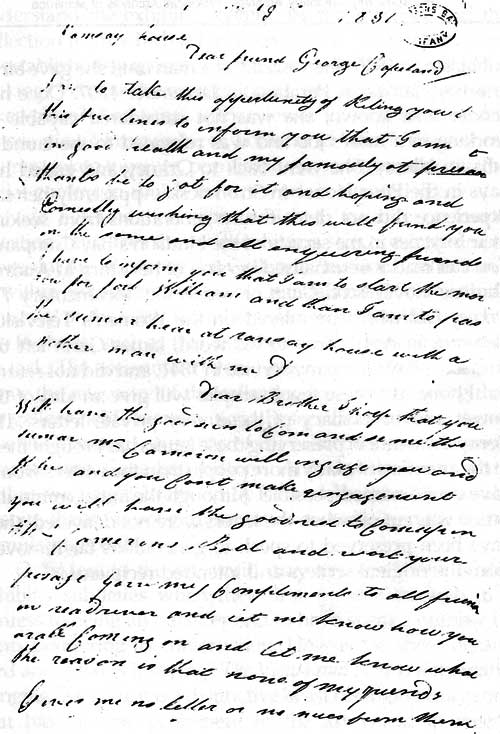 1831
Ramsay house
Dear friend George Copeland
I do take this oppertunity of Riting you
this few lines to inform you that I am
in good health and my fameely at presan
thanks be to god for it and hoping and
Ernestly wushing that this will find you
in the same and all inquiering friends
I have to inform you that I am to start the mor
row for fort William and than I am to pas
the summar hear at ramsay house with a
nother man with me
Dear Brother I hoop that you
will have the goodness to
humar mr Camron will ingage you and
if he and you Cont make engagement
you will have the goodness to Come up in
mr Camerons Boat and I will your
pasage General Complements to all friends
on readriver and let me know how you
ar all Coming on and let me know what
the reason is that none of my friends
Gives me no letter or no nues from them